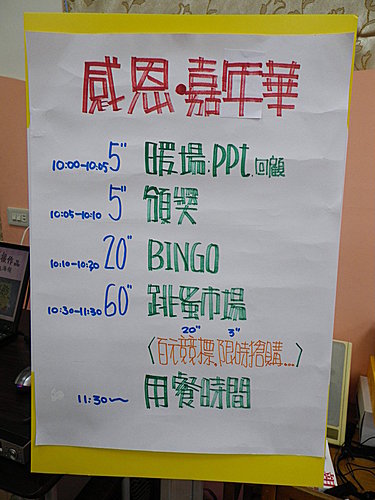 感恩·嘉年華
10:00-10:05 5" 暖場:ppt.回顧
10:05-10:10 5" 頒獎
10:10-10:30 20" BINGO
10:30-11:30 60" 跳蚤市場
20" 3"
(百元競標.限時搶購...)
11:30~ 用餐時間